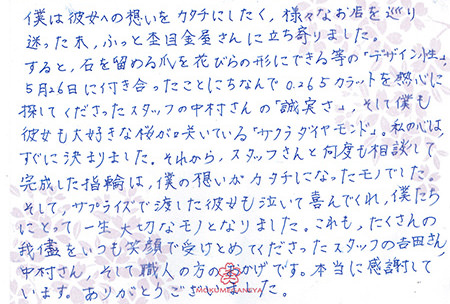 僕は彼女への想いをカタチにしたく、様々なお店を巡り
迷った末、ふっと杢目金屋さんに立ち寄りました。
すると、石を留める爪を花びらの形にできる等の「デザイン性」
5月26日に付き合ったことにちなんで0.265カラットを熱心に
探してくださったスタッフの中村さんの「誠実さ」、そして僕も
彼女も大好きな桜が咲いている「サクラダイヤモンド」。私の心は、
すぐに決まりました。それから、スタッフさんと何度も相談して
完成した指輪は、僕の想いがカタチになったモノでした。
そして、サプライズで渡した彼女も泣いて喜んでくれ、僕たち
にとって一生大切なモノとなりました。これも、たくさんの
我儘をいつも笑顔で受けとめてくださったスタッフの吉田さん、
中村さん、そして職人の方のおかげです。本当に感謝して
います。ありがとうございました。
MOKUMEGANEYA